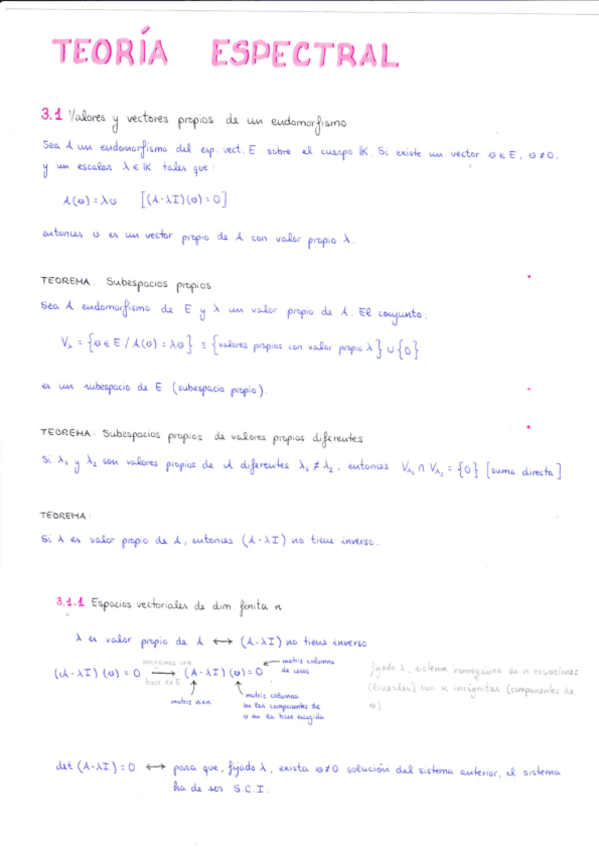 TEORÍA ESPECTRAL
3.1 Valores y vectores propios de un endomorfismo
Sea A un endomorfismo del esp. vect. E sobre el cuerpo IK. Si existe un vector v ∈ E, v ≠ 0.
y un escalar λ ∈ IK tales que:
A(v) = λv [(A-λI)(v) = 0]
entonces v es un vector propio de A con valor propio λ.
TEOREMA: Subespacios propios
Sea A endomorfismo de E y λ un valor propio de A. El conjunto:
Vλ = {v ∈ E / A(v) = λv} ≡ {valores propios con valor propio λ} ∪ {0}
es un subespacio de E (subespacio propio).
TEOREMA: Subespacios propios de valores propios diferentes
Si λ₁ y λ₂ son valores propios de A diferentes λ₁ ≠ λ₂, entonces Vλ₁ ∩ Vλ₂ = {0} [suma directa]
TEOREMA:
Si λ es valor propio de A, entonces (A-λI) no tiene inverso.
3.1.1 Espacios vectoriales de dim finita n
λ es valor propio de A ↔ (A-λI) no tiene inverso
(A-λI)(v) = 0 → (A-λI)(v) = 0
base de E
matriz columna
de ceros
matriz nxn
matriz columna
con las componentes de
v en la base escogida
fijado λ, sistema homogéneo de n ecuaciones
(lineales) con n incógnitas (componentes de
v)
det (A-λI) = 0 ↔ para que, fijado λ, exista v≠0 solución del sistema anterior, el sistema
ha de ser S.C.I.